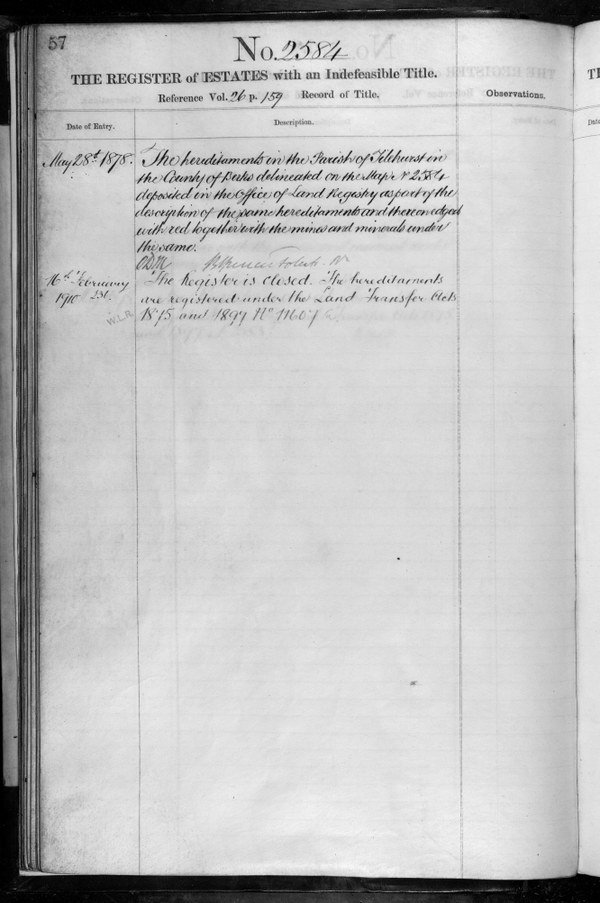 57
No. 2584
THE REGISTER of ESTATES with an Indefeasible Title.
Reference Vol. 26 p. 159 Record of Title.
Observations.
Date of Entry.
Description.
May 28th 1878.
The hereditaments in the Parish of Tilehurst in
the County of Berks delineated on the Map No 2584
deposited in the Office of Land Registry as part of the
description of the same hereditaments and thereon edged
with red together with the mines and minerals under
the same.
16th February
1910
The Register is closed. The hereditaments
are registered under the Land Transfer Acts
W.L.R.
1875 and 1897 No